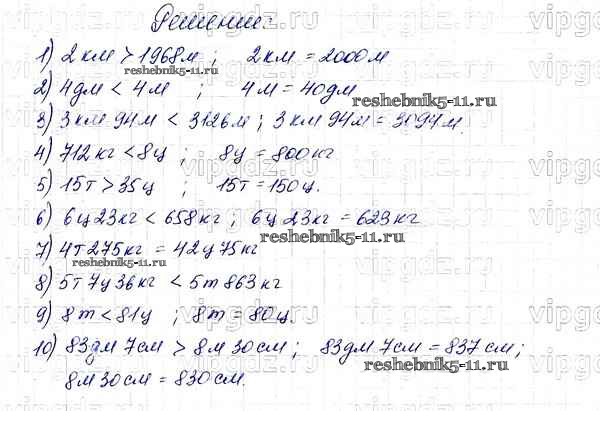 Решение:
1) 2км > 1968м ; 2км = 2000м
2) 4дм < 4м ; 4м = 40дм
3) 3км 94м < 3126м ; 3км 94м = 3094м.
4) 712кг < 8ц ; 8ц = 800кг
5) 15т > 35ц ; 15т = 150ц.
6) 6ц 23кг < 658кг ; 6ц 23кг = 623кг
7) 4т 275кг = 42ц 75кг
8) 5т 7ц 36кг < 5т 863кг
9) 8т < 81ц ; 8т = 80ц.
10) 83дм 7см > 8м 30см ; 83дм 7см = 837см ;
8м 30см = 830см.
reshebnik5-11.ru
reshebnik5-11.ru
reshebnik5-11.ru
reshebnik5-11.ru
reshebnik5-11.ru
vipgdz.ru